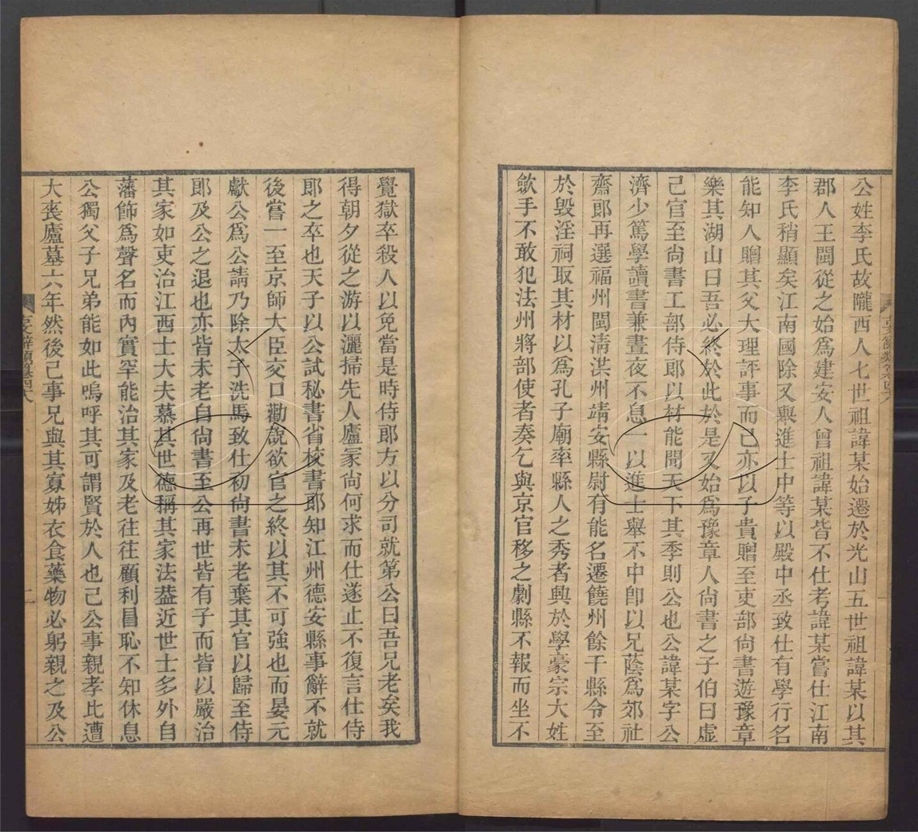 公姓李氏故隴西人七世祖諱某始遷於光山五世祖諱某以其
郡人王閩從之始爲建安人曾祖諱某皆不仕考諱某嘗仕江南
李氏稍顯矣江南國除又舉進士中等以殿中丞致仕有學行名
能知人贈其父大理評事而己亦以子貴贈至吏部尚書遊豫章
樂其湖山曰吾必終於此於是又始爲豫章人尚書之子伯曰虛
己官至尚書工部侍郎以材能聞天下其季則公也公諱某字公
濟少篤學讀書兼晝夜不息一以進士舉不中卽以兄蔭爲郊社
齋郎再選福州閩淸洪州靖安縣尉有能名遷饒州餘干縣令至
於毀淫祠取其材以爲孔子廟率縣人之秀者興於學豪宗大姓
歛手不敢犯法州將部使者奏乞與京官移之劇縣不報而坐不
覺獄卒殺人以免當是時侍郎方以分司就第公曰吾兄老矣我
得朝夕從之游以灑掃先人廬冢尚何求而仕遂止不復言仕侍
郎之卒也天子以公試秘書省校書郎知江州德安縣事辭不就
後嘗一至京師大臣交口勸說欲官之終以其不可強也而晏元
獻公爲公請乃除太子洗馬致仕初尚書未老棄其官以歸至侍
郎及公之退也亦皆未老自尚書至公再世皆有子而皆以嚴治
其家如吏治江西士大夫慕其世德稱其家法葢近世士多外自
藩飾爲聲名而內實罕能治其家及老往往顧利昌恥不知休息
公獨父子兄弟能如此嗚呼其可謂賢於人也已公事親孝比遭
大喪廬墓六年然後已事兄與其寡姊衣食藥物必躬親之及公
二